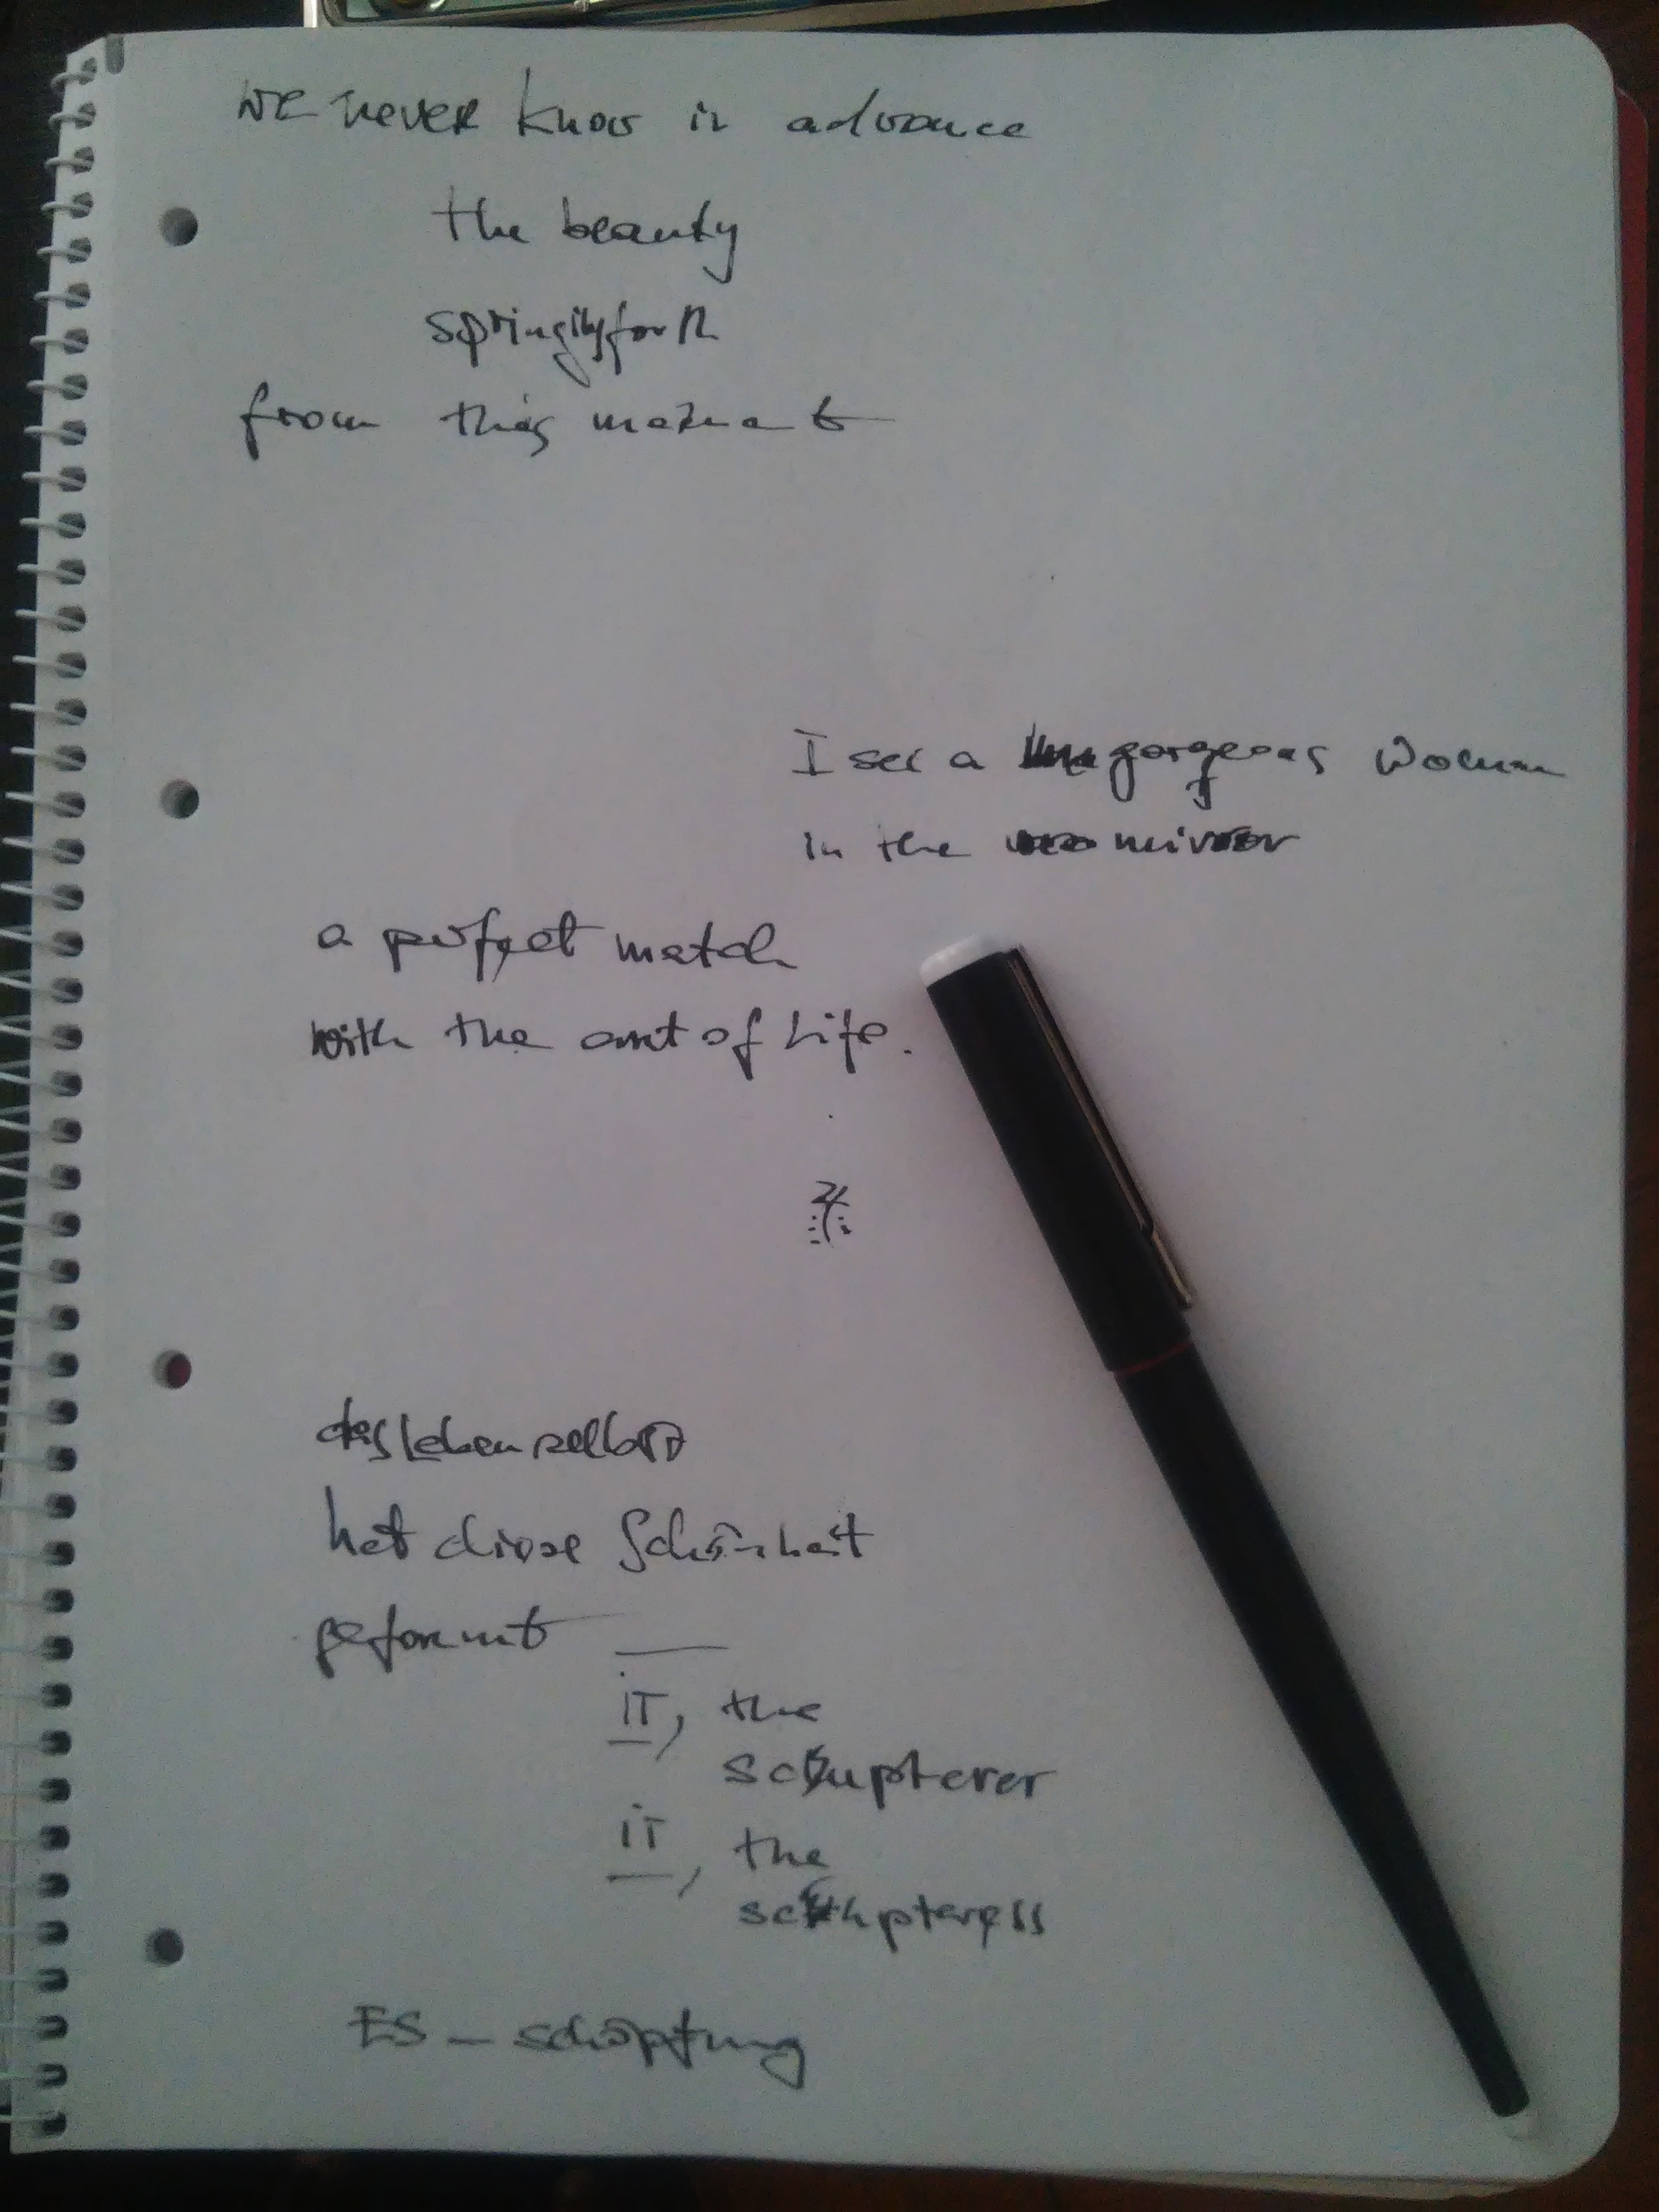 WE never know in advance
the beauty
springing forth
from this moment
I see a gorgeous woman
in the mirror
a perfect match
with the art of Life.
das Leben selbst
hat diese Schönheit
geformt
iT, the
sculpterer
iT, the
sculpteress
ES – schöpfung